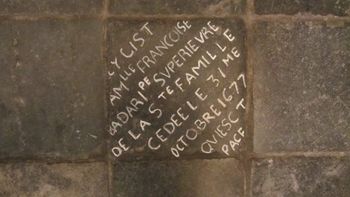 CY GIST
FRANCOISE
SUPERIEURE
DE LA STE FAMILLE
CEDEE LE 31ME
OCTOBRE 1677
QVIESCT
PACE